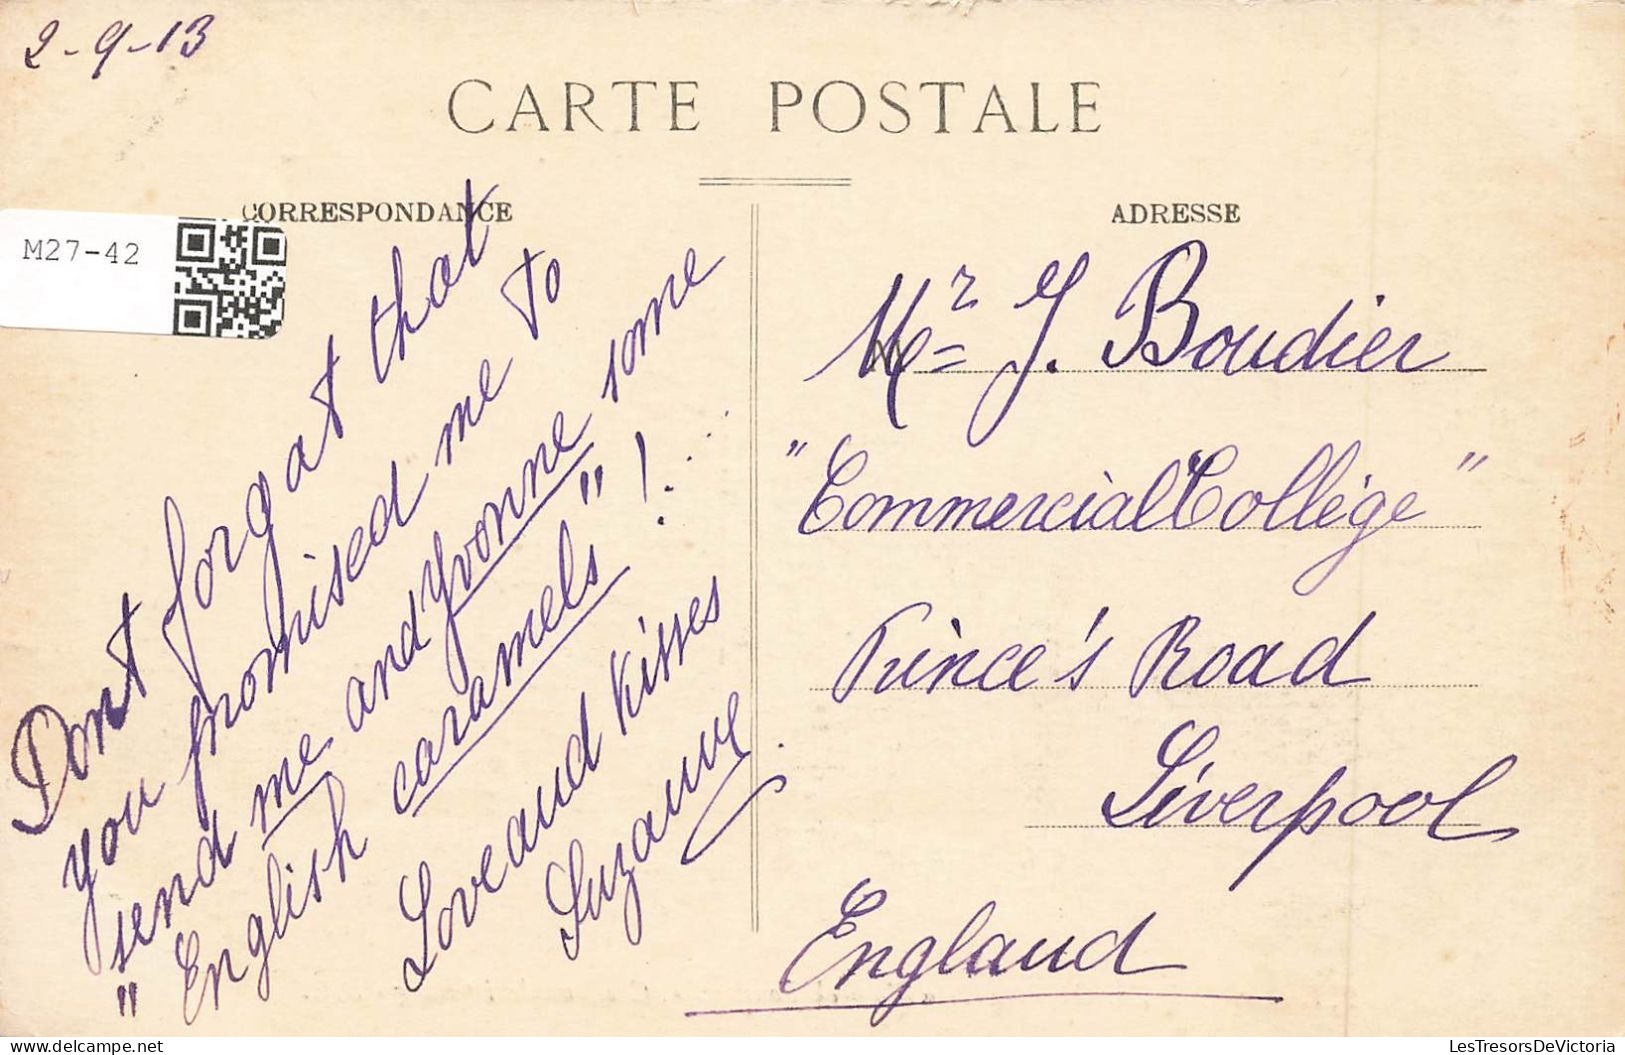 2-9-13
CARTE POSTALE
CORRESPONDANCE
ADRESSE
M27-42
Dont forgat that
you promised me to
send me and Yvonne some
"English caramels"!...
Love and Kisses
Suzanne
Mr J. Boudier
"Commercial Collège"
Prince's Road
Liverpool
England
LesTresorsDeVictoria.com
LesTresorsDeVictoria